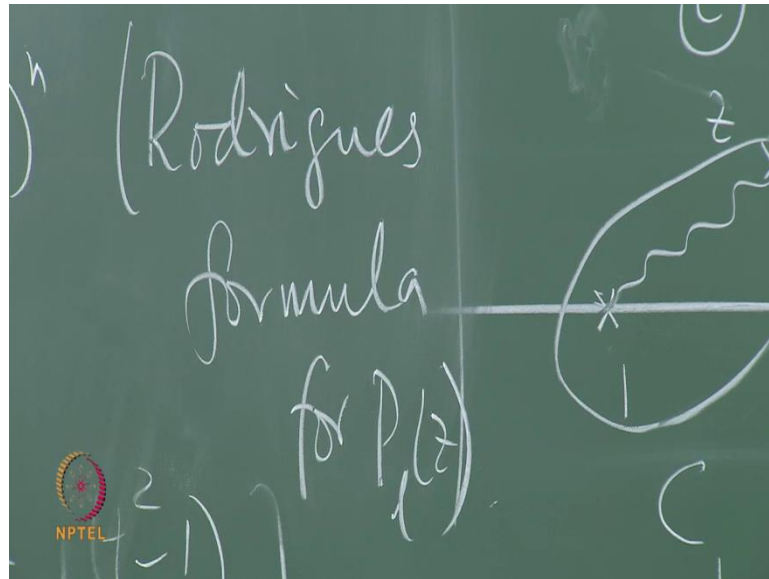 )ⁿ (Rodrigues
formula
for Pₗ(z))
C
z
1
C
t²-1)
NPTEL